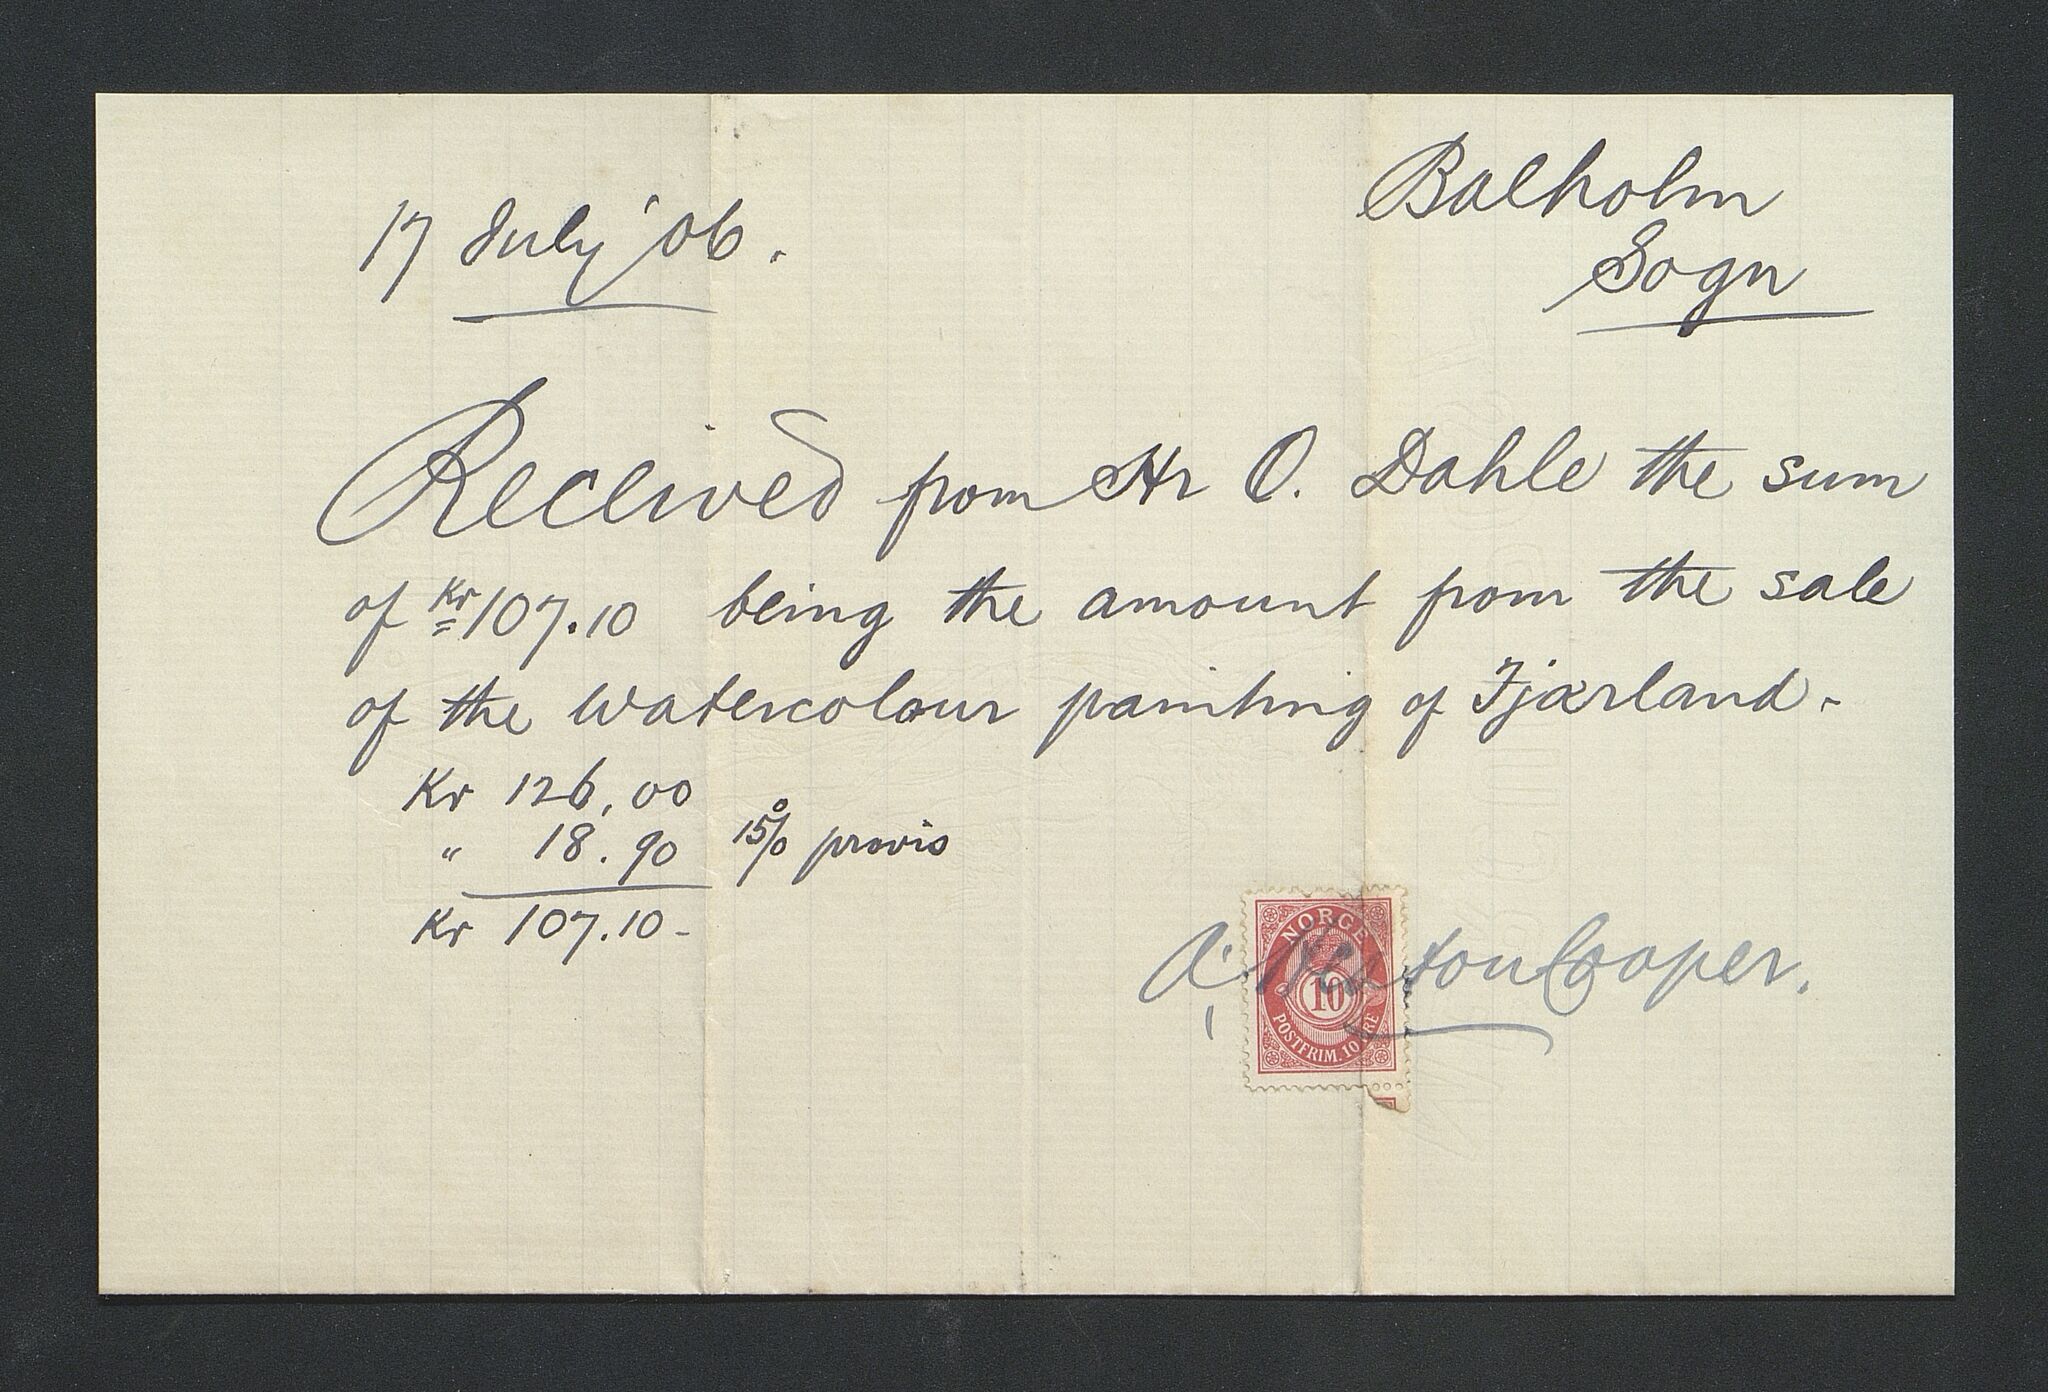 Balholm
Sogn
17 July '06.
Received from Hr O. Dahle the sum
of Kr 107.10 being the amount from the sale
of the watercolour painting of Fjærland.
Kr 126,00
" 18.90 15% provis
Kr 107.10-
A. Heaton Cooper.
NORGE
10
POSTFRIM. 10 ØRE